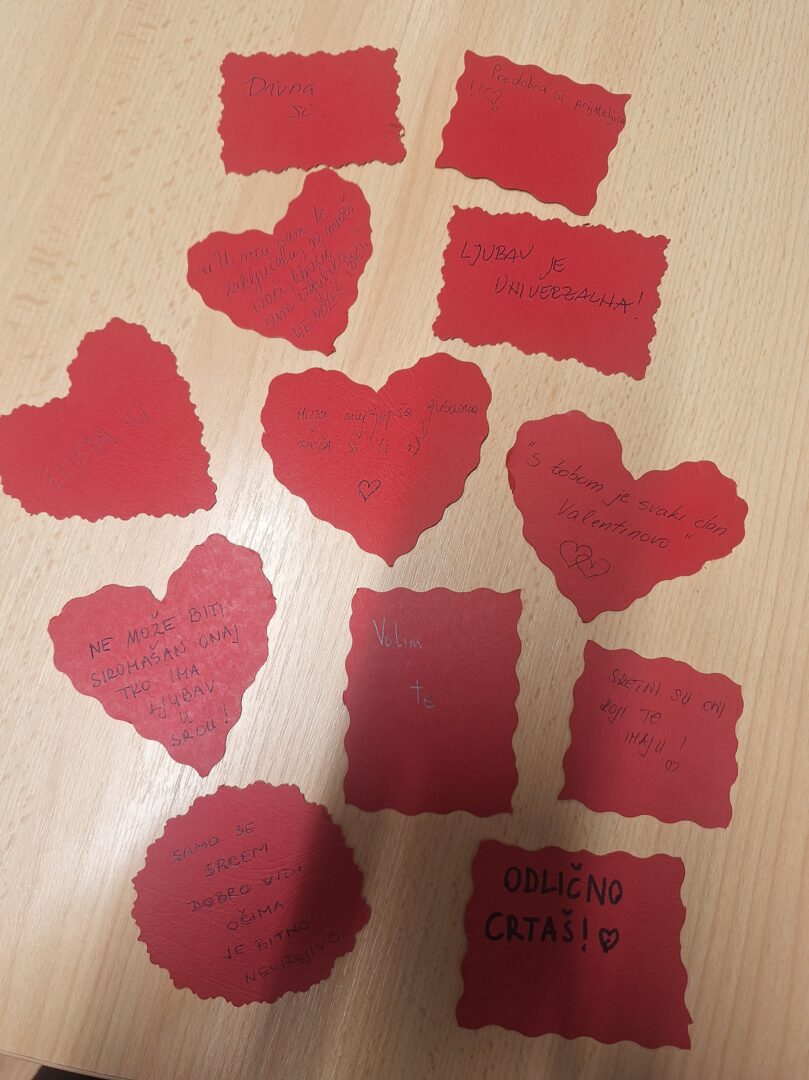 Divna
si ...
Predobra si prijateljica
!!♡?
"U srcu sam te
zaključala, ne možeš
izaći, ključić
sam izgubila
NE MOŽEŠ IZAĆI."
LJUBAV JE
UNIVERZALNA!
SI
Moja najljepša ljubavna
priča si ti :)
♡
"S tobom je svaki dan
Valentinovo"
NE MOŽE BITI
SIROMAŠAN ONAJ
TKO IMA
LJUBAV
U
SRCU!
Volim
te
SRETNI SU ONI
KOJI TE
IMAJU!
♡
SAMO SE
SRCEM
DOBRO VIDI,
OČIMA
JE BITNO
NEVIDLJIVO.
ODLIČNO
CRTAŠ! ♡